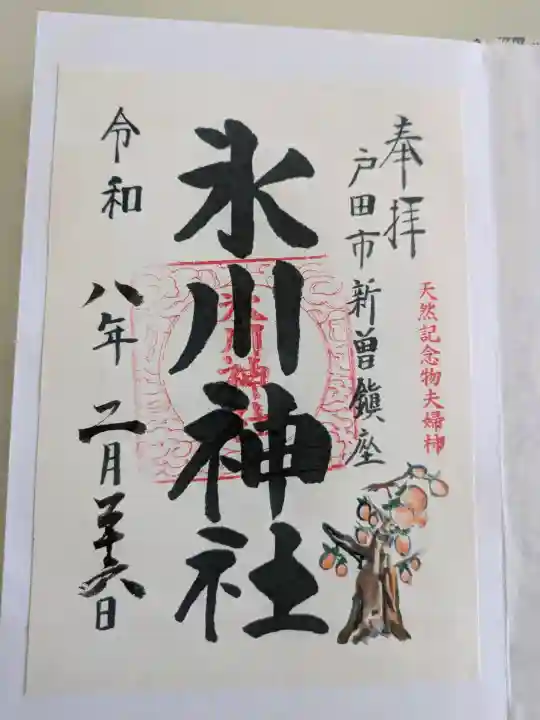 天然記念物夫婦柿
奉拝
戸田市新曽鎮座
氷川神社
氷川神社
令和八年二月二十六日